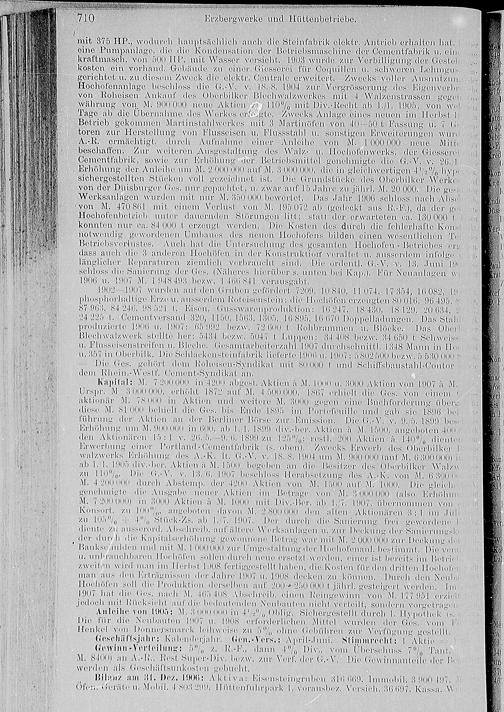 710 Erzbergwerke und Hüttenbetriebe.
mit 375 HP., wodurch hauptsächlich auch die Steinfabrik elektr. Antrieb erhalten hat.
eine Pumpanlage, die die Kondensation der Betriebsmaschinen der Cementfabrik u. ein
kraftmasch. von 500 HP. mit Wasser versieht. 1903 wurde zur Verbilligung der Gestel
kosten ein vorhand. Gebäude zu einer Giesserei für Coquillen u. schweren Lehmgu
gerichtet u. zu diesem Zweck die elektr. Centrale erweitert. Zwecks voller Ausnutzun
Hochofenanlage beschloss die G.-V. v. 18./8. 1904 zur Vergrösserung des Eigenverbr
von Roheisen Ankauf des Oberbilker Blechwalzwerkes mit 4 Walzenstrassen gegen
währung von M. 900 000 neue Aktien 110% mit Div.-Recht ab 1./1. 1905, von wel
Tage ab die Übernahme des Werkes Zwecks Anlage eines neuen im Herbst
Betrieb gekommen Martinstahlwerkes mit 3 Martinöfen von 40—50 t Fassung u.
toren zur Herstellung von Flusseisen u. Flussstahl u. sonstigen Erweiterungen wur
A.-R. ermächtigt, durch Aufnahme einer Anleihe von M. 1 000 000 neue Mitt
beschaffen. Zur weiteren Ausgestaltung des Walz- u. Hochofenwerks, der Giesser
Cementfabrik, sowie zur Erhöhung der Betriebsmittel genehmigte die G.-V. v. 26.
Erhöhung der Anleihe um M. 2 000 000 auf M. 3 000 000, die in gleichwertigen 4½% hyp
sichergestellten Stücken voll gezeichnet ist. Die Grundstücke des Oberbilker Werk
von der Duisburger Ges. nur gepachtet, u. zwar auf 15 Jahre zu jährl. M. 20 000. Die ge
Werksanlagen wurden mit nur M. 350 000 bewertet. Das Jahr 1906 schloss nach Abs
von M. 470 861 mit einem Verlust von M. 195 072 ab (gedeckt aus R.-F.), da der g
Hochofenbetrieb unter dauernden Störungen litt; statt der erwarteten ca. 130 000 t
konnten nur ca. 84 000 t erzeugt werden. Die Kosten des durch die fehlerhafte Kon
notwendig gewordenen Umbaues des neuen Hochofens bilden einen wesentlichen T
Betriebsverlustes. Auch hat die Untersuchung des gesamten Hochofen-Betriebes er
dass auch die 3 anderen Hochöfen in der Konstruktion veraltet u. ausserdem infolge
länglicher Reparaturen ziemlich verbraucht sind. Die ordentl. G.-V. v. 13. Juni 19
schloss die Sanierung der Ges. (Näheres hierüber s. unten bei Kap.). Für Neuanlagen w
1906 u. 1907 M. 1 948 493 bezw. 1 466 841 verausgabt.
1902—1907 wurden aus den Gruben gefördert 7209, 10 840, 11 074, 17 354, 16 082,
phosphorhaltige Erze u. ausserdem Roteisenstein; die Hochöfen erzeugten 80 016, 96 495,
87 963, 84 246, 98 521 t. Eisen; Gusswarenproduktion: 16 247, 18 430, 18 129, 20 634,
24 225 t. Cementversand 320, 1150, 1563, 1305, 16 895, 16 670 Doppelladungen. Das Stahl
produzierte 1906 u. 1907: 65 992 bezw. 72 600 t Rohbrammen u. Blöcke. Das Ober
Blechwalzwerk stellte her: 5434 bezw. 5047 t Luppen; 34 408 bezw. 34 650 t Schweiss
u. Flusseisenstreifen u. Bleche. Gesamtarbeiterzahl 1907 durchschnittl. 1348 Mann in D
u. 357 in Oberbilk. Die Schlackensteinfabrik lieferte 1906 u. 1907: 5 802 500 bezw. 5 530 000
Die Ges. gehört dem Roheisen-Syndikat mit 80 000 t und Schiffbaustahl-Contor
dem Rhein.-Westf. Cement-Syndikat an.
Kapital: M. 7 200 000 in 4200 abgest. Aktien à M. 1000 u. 3000 Aktien von 1907 à M.
Urspr. M. 3 000 000, erhöht 1872 auf M. 4 500 000. 1867 erhielt die Ges. von einem
aktionär M. 78 000 in Aktien und weitere M. 3000 gegen eine Buchforderung über
diese M. 81 000 behielt die Ges. bis Ende 1895 im Portefeuille und gab sie 1896 bei
führung der Aktien an der Berliner Börse zur Emission. Die G.-V. v. 9./5. 1899 bes
Erhöhung um M. 900 000 in 600, ab 1./1. 1899 div.-ber. Aktien à M. 1500, angeboten 400
den Aktionären 15:1 v. 26./5.—9./6. 1899 zu 125%; restl. 200 Aktien à 140% dienten
Erwerbung einer Portland-Cementfabrik (s. oben). Zwecks Erwerb des Oberbilker
walzwerks Erhöhung des A.-K. lt. G.-V. v. 18./8. 1904 um M. 900 000 (auf M. 6 300 000) i
ab 1./1. 1905 div.-ber. Aktien à M. 1500 begeben an die Besitzer des Oberbilker Walzw
zu 110%. Die G.-V. v. 13./6. 1907 beschloss Herabsetzung des A.-K. von M. 6 300
M. 4 200 000 durch Abstemp. der 4200 Aktien von M. 1500 auf M. 1000. Die gleich
genehmigte die Ausgabe neuer Aktien im Betrage von M. 3 000 000 (also Erhöhun
M. 7 200 000) in 3000 Aktien à M. 1000 mit Div.-Ber. ab 1./7. 1907, übernommen von
Konsort. zu 100%, angeboten davon M. 2 800 000 den alten Aktionären 3:1 im Jul
zu 105% + 4% Stück-Zs. ab 1./7. 1907. Der durch die Sanierung frei gewordene
diente zu ausserord. Abschreib. auf ältere Werksanlagen u. zur Deckung der Sanierungsk
der durch die Kapitalserhöhung gewonnene Betrag war mit M. 2 000 000 zur Deckung de
Bankschulden und mit M. 1 000 000 zur Umgestaltung der Hochofenanl. bestimmt. Die ver
u. unbrauchbaren Hochöfen sollen durch neue ersetzt werden, einer ist bereits im Betrie
zweiten wird man im Herbst 1908 fertiggestellt haben, die Kosten für den dritten Hochofen
man aus den Erträgnissen der Jahre 1907 u. 1908 decken zu können. Durch den Neuba
Hochöfen soll die Produktion derselben auf 200—250 000 t jährl. gesteigert werden. Im
1907 hat die Ges. nach M. 465 408 Abschreib. einen Reingewinn von M. 177 951 erziel
jedoch mit Rücksicht auf die bedeutenden Neubauten nicht verteilt, sondern vorgetragen
Anleihe von 1905: M. 3 000 000 in 4½% Oblig. Sichergestellt durch 1. Hypothek
Die für die Neubauten 1907 u. 1908 erforderlichen Mittel wurden der Ges. vom F
Henkel von Donnersmarck leihweise zu 5% ohne Gebühren zur Verfügung gestellt.
Geschäftsjahr: Kalenderjahr. Gen.-Vers.: April-Juni. Stimmrecht: 1 Aktie
Gewinn-Verteilung: 5% z. R.-F., dann 4% Div., vom Überschuss 7% Tant.
M. 8400) an A.-R., Rest Super-Div. bezw. zur Verf. der G.-V. Die Gewinnanteile der B
werden als Geschäftsunkosten gebucht.
Bilanz am 31. Dez. 1906: Aktiva: Eisensteingruben 316 669, Immobil. 3 900 497,
Öfen, Geräte u. Mobil. 4 803 299, Hüttenfuhrpark 1, vorausbez. Versich. 36 697, Kassa, W